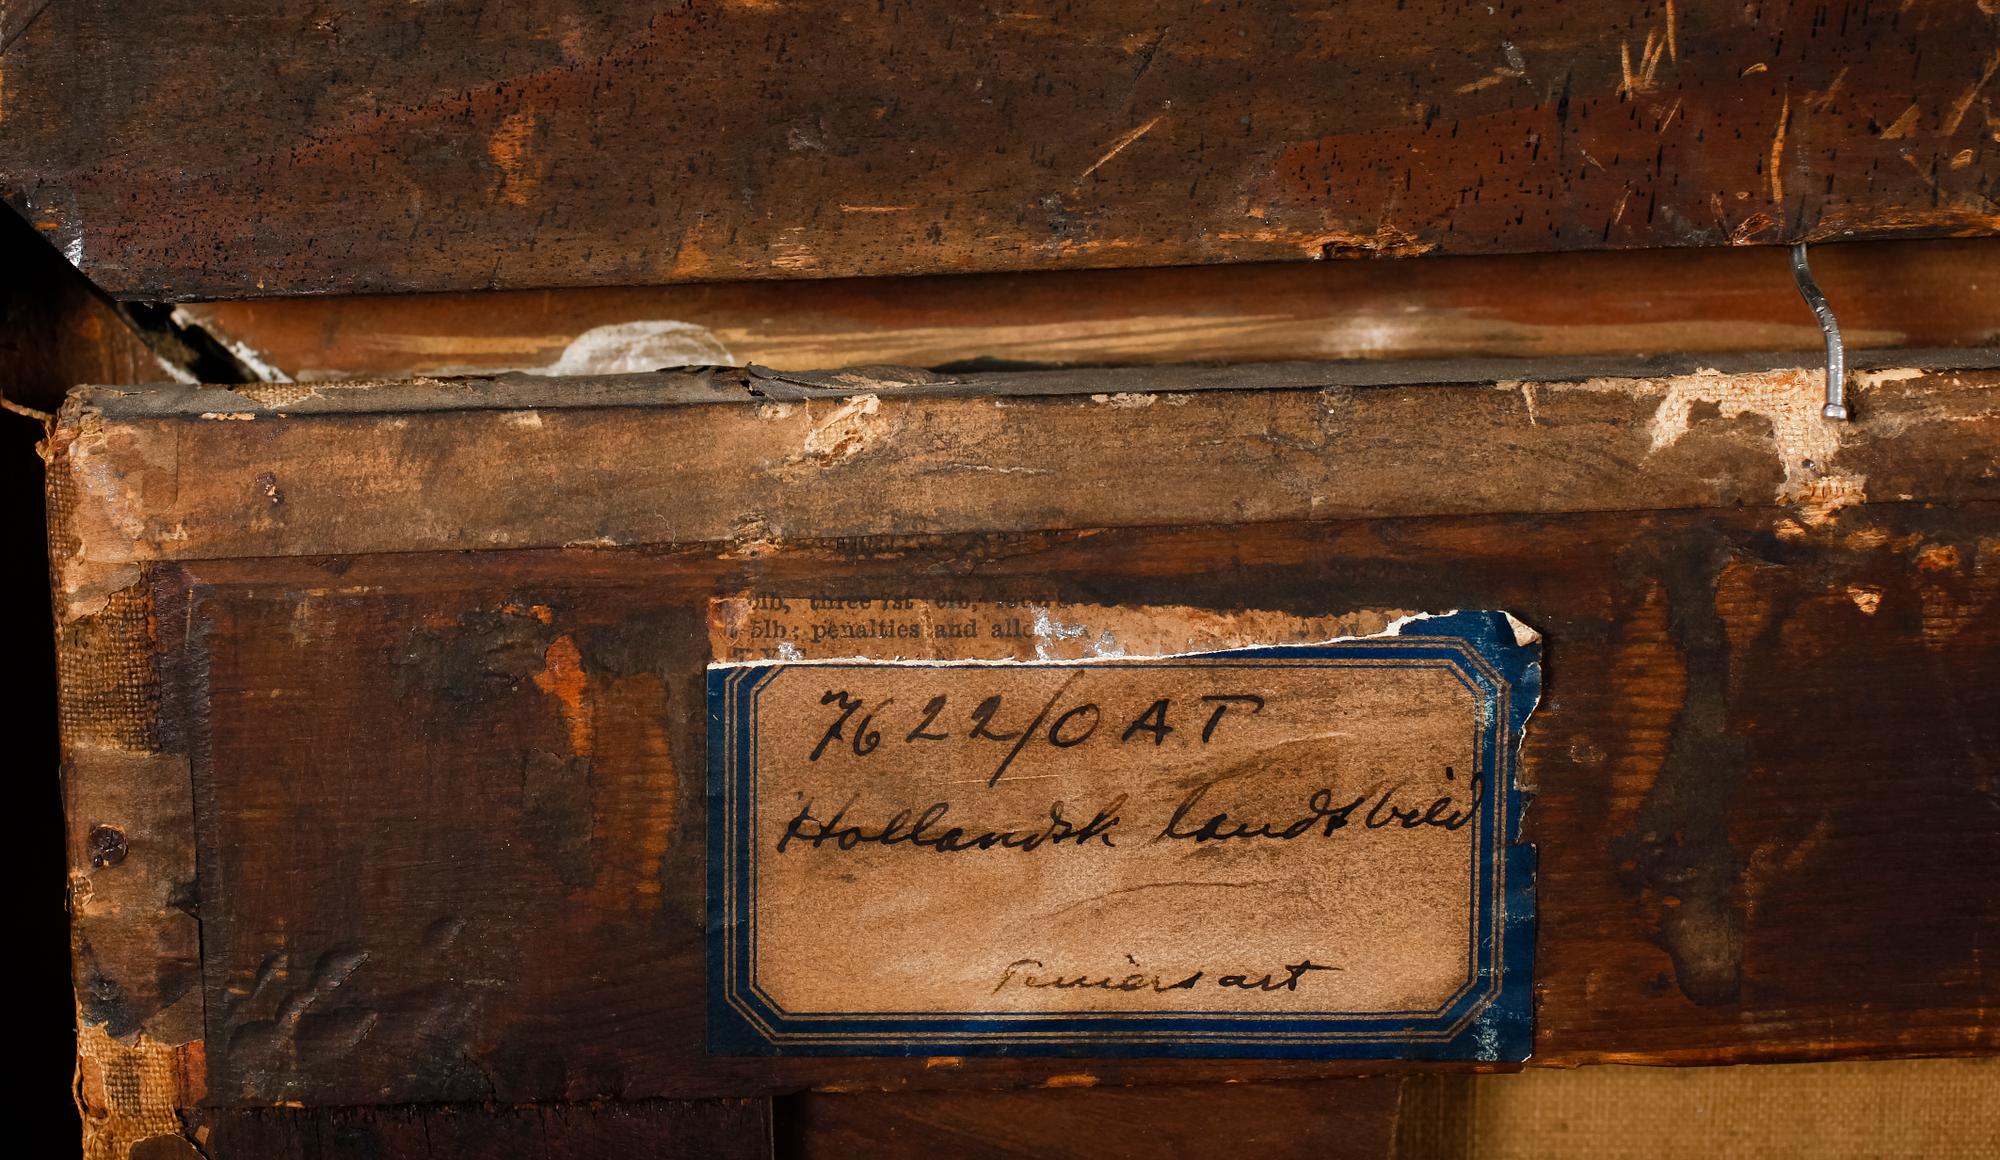 three 7st
5lb; penalties and
7622/OAT
Hollandsk landsbild
Teniers art